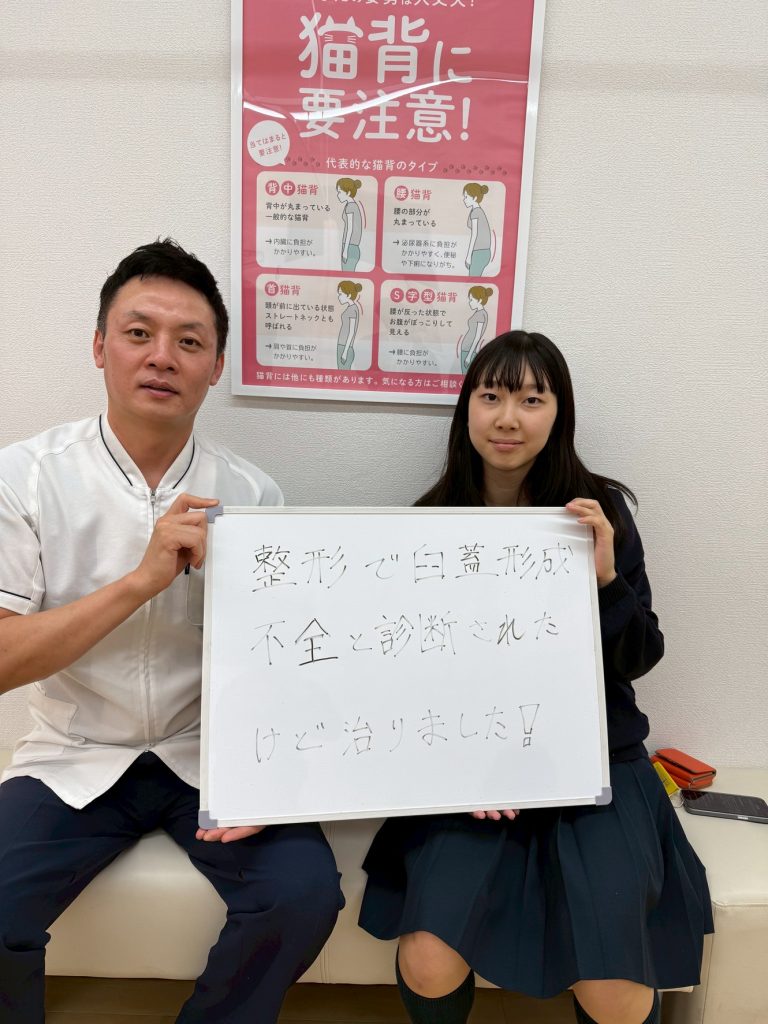 猫背に
要注意!
当てはまると
要注意!
代表的な猫背のタイプ
背中猫背
背中が丸まっている
一般的な猫背
→内臓に負担が
かかりやすい。
腰猫背
腰の部分が
丸まっている
→泌尿器系に負担が
かかりやすく、便秘
や下痢になりがち。
首猫背
頭が前に出ている状態
ストレートネックとも
呼ばれる
→肩や首に負担が
かかりやすい。
S字型猫背
腰が反った状態で
お腹がぽっこりして
見える
→腰に負担が
かかりやすい。
猫背には他にも種類があります。気になる方はご相談く
整形で臼蓋形成
不全と診断された
けど治りました!